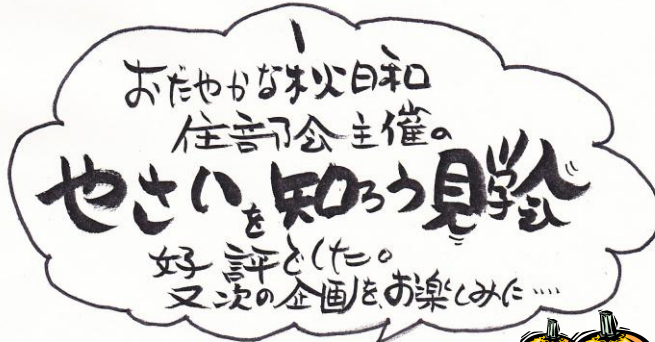 おだやかな秋日和
住部会主催の
やさいを知ろう見学会
好評でした。
又次の企画を、お楽しみに……